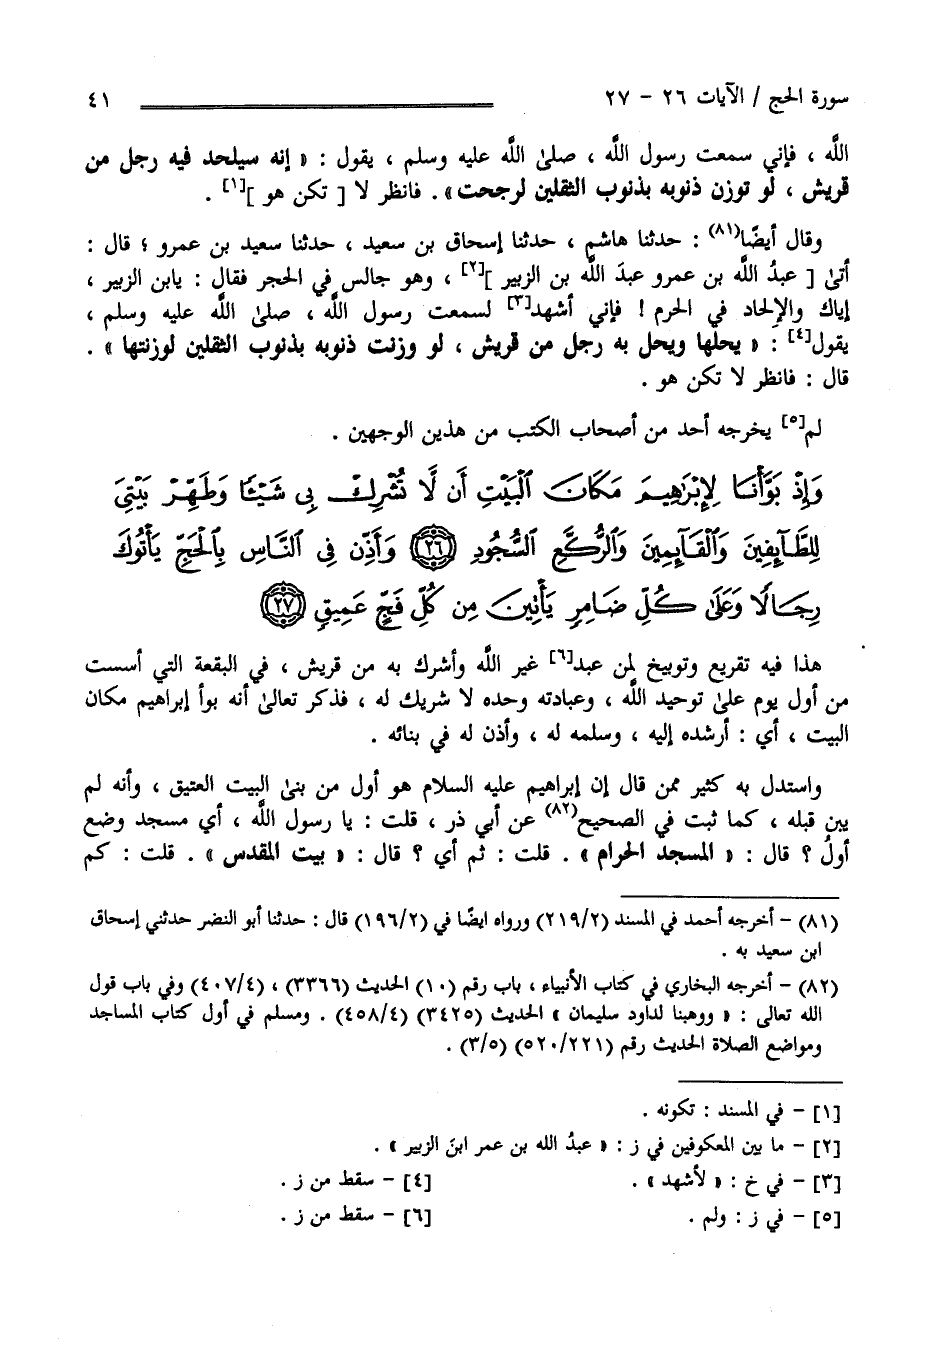 سورة الحج / الآيات ٢٦ – ٢٧ ٤١
الله ، فإني سمعت رسول الله ، صلىٰ الله عليه وسلم ، يقول : « إنه سيلحد فيه رجل من
قريش ، لو توزن ذنوبه بذنوب الثقلين لرجحت» . فانظر لا [ تكن هو ][١] .
وقال أيضًا(٨١) : حدثنا هاشم ، حدثنا إسحاق بن سعيد ، حدثنا سعيد بن عمرو ؛ قال :
أتىٰ [ عبدُ الله بن عمرو عبدَ الله بن الزبير ][٢] ، وهو جالس في الحجر فقال : يابن الزبير ،
إياك والإلحاد في الحرم ! فإني أشهد[٣] لسمعت رسول الله ، صلىٰ الله عليه وسلم ،
يقول[٤] : « يحلها ويحل به رجل من قريش ، لو وزنت ذنوبه بذنوب الثقلين لوزنتها » .
قال : فانظر لا تكن هو .
لم[٥] يخرجه أحد من أصحاب الكتب من هذين الوجهين .
وَإِذْ بَوَّأْنَا لِإِبْرَٰهِيمَ مَكَانَ ٱلْبَيْتِ أَن لَّا تُشْرِكْ بِى شَيْـًٔا وَطَهِّرْ بَيْتِىَ
لِلطَّآئِفِينَ وَٱلْقَآئِمِينَ وَٱلرُّكَّعِ ٱلسُّجُودِ ۝٢٦ وَأَذِّن فِى ٱلنَّاسِ بِٱلْحَجِّ يَأْتُوكَ
رِجَالًا وَعَلَىٰ كُلِّ ضَامِرٍ يَأْتِينَ مِن كُلِّ فَجٍّ عَمِيقٍ ۝٢٧
هذا فيه تقريع وتوبيخ لمن عبد[٦] غير الله وأشرك به من قريش ، في البقعة التي أسست
من أول يوم علىٰ توحيد الله ، وعبادته وحده لا شريك له ، فذكر تعالىٰ أنه بوأ إبراهيم مكان
البيت ، أي : أرشده إليه ، وسلمه له ، وأذن له في بنائه .
واستدل به كثير ممن قال إن إبراهيم عليه السلام هو أول من بنىٰ البيت العتيق ، وأنه لم
يبن قبله ، كما ثبت في الصحيح(٨٢) عن أبي ذر ، قلت : يا رسول الله ، أي مسجد وضع
أولُ ؟ قال : « المسجد الحرام » . قلت : ثم أي ؟ قال : « بيت المقدس » . قلت : كم
(٨١) – أخرجه أحمد في المسند (٢١٩/٢) ورواه ايضًا في (١٩٦/٢) قال : حدثنا أبو النضر حدثني إسحاق
ابن سعيد به .
(٨٢) – أخرجه البخاري في كتاب الأنبياء ، باب رقم (١٠) الحديث (٣٣٦٦) ، (٤٠٧/٤) وفي باب قول
الله تعالى : « ووهبنا لداود سليمان » الحديث (٣٤٢٥) (٤٥٨/٤) . ومسلم في أول كتاب المساجد
ومواضع الصلاة الحديث رقم (٥٢٠/٢٢١) (٣/٥) .
[١] – في المسند : تكونه .
[٢] – ما بين المعكوفين في ز : « عبدُ الله بن عمر ابنَ الزبير » .
[٣] – في خ : « لأشهد » . [٤] – سقط من ز .
[٥] – في ز : ولم . [٦] – سقط من ز .